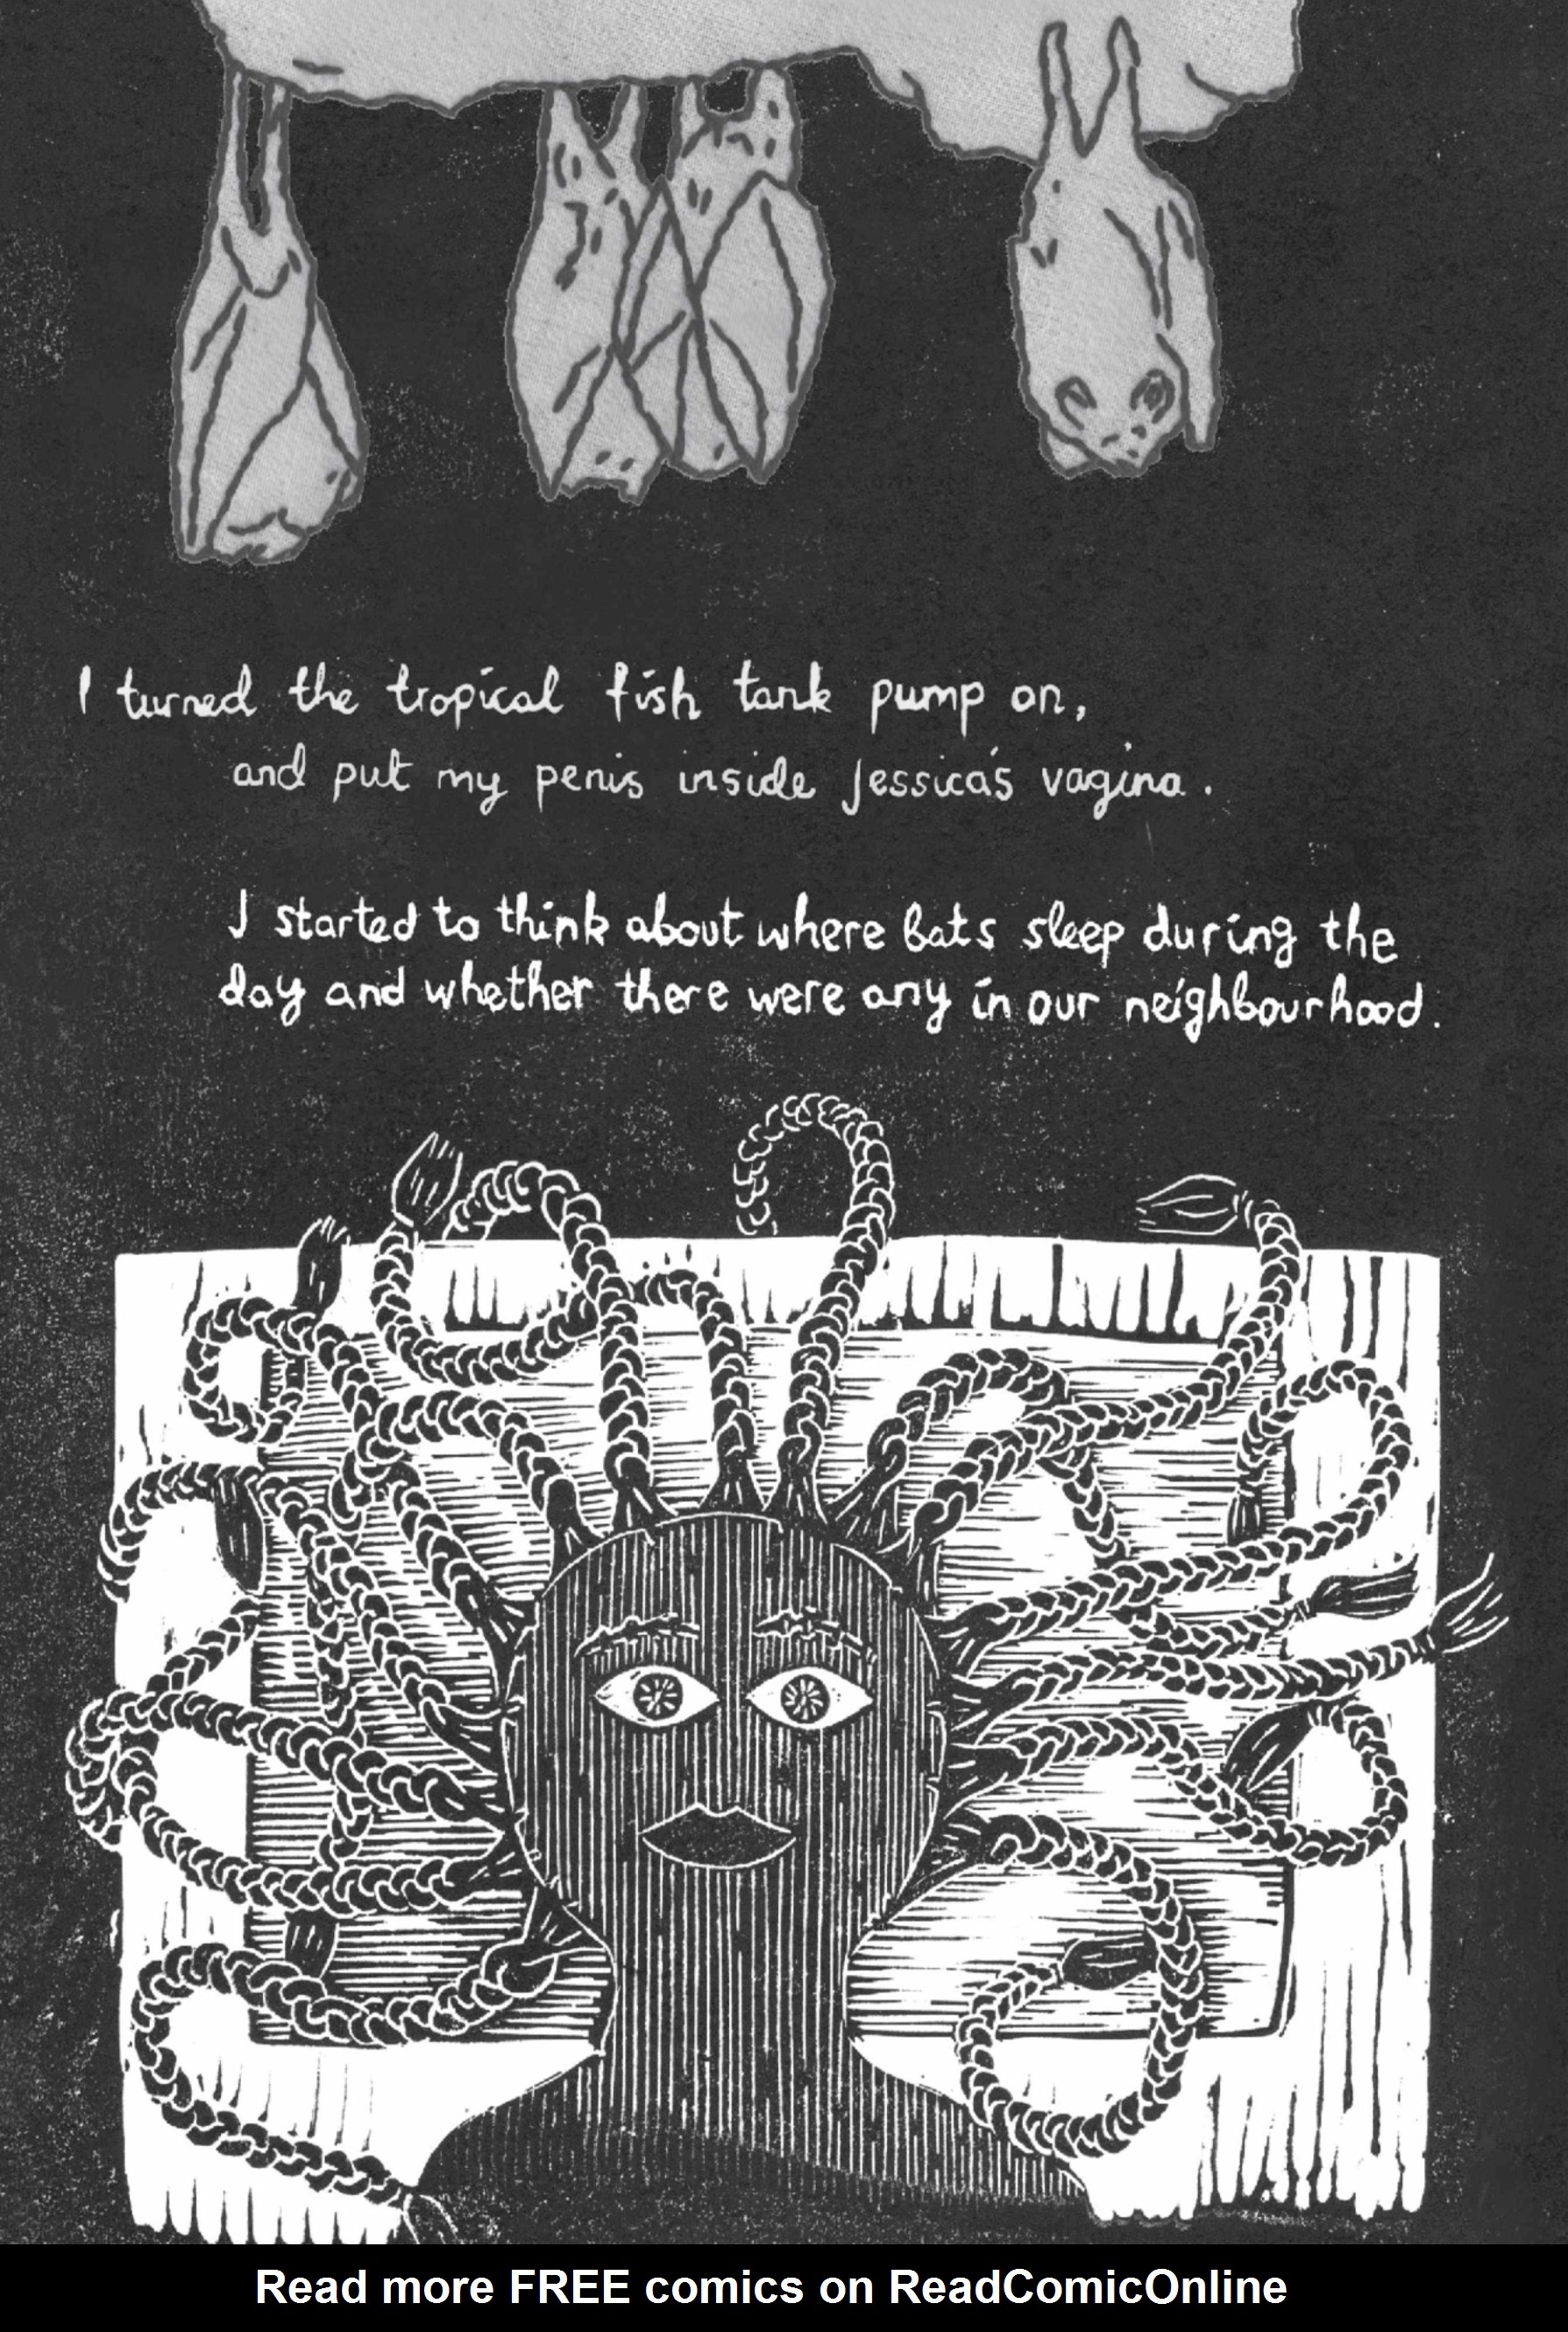 I turned the tropical fish tank pump on,
and put my penis inside Jessica's vagina.
I started to think about where bats sleep during the
day and whether there were any in our neighbourhood.
Read more FREE comics on ReadComicOnline